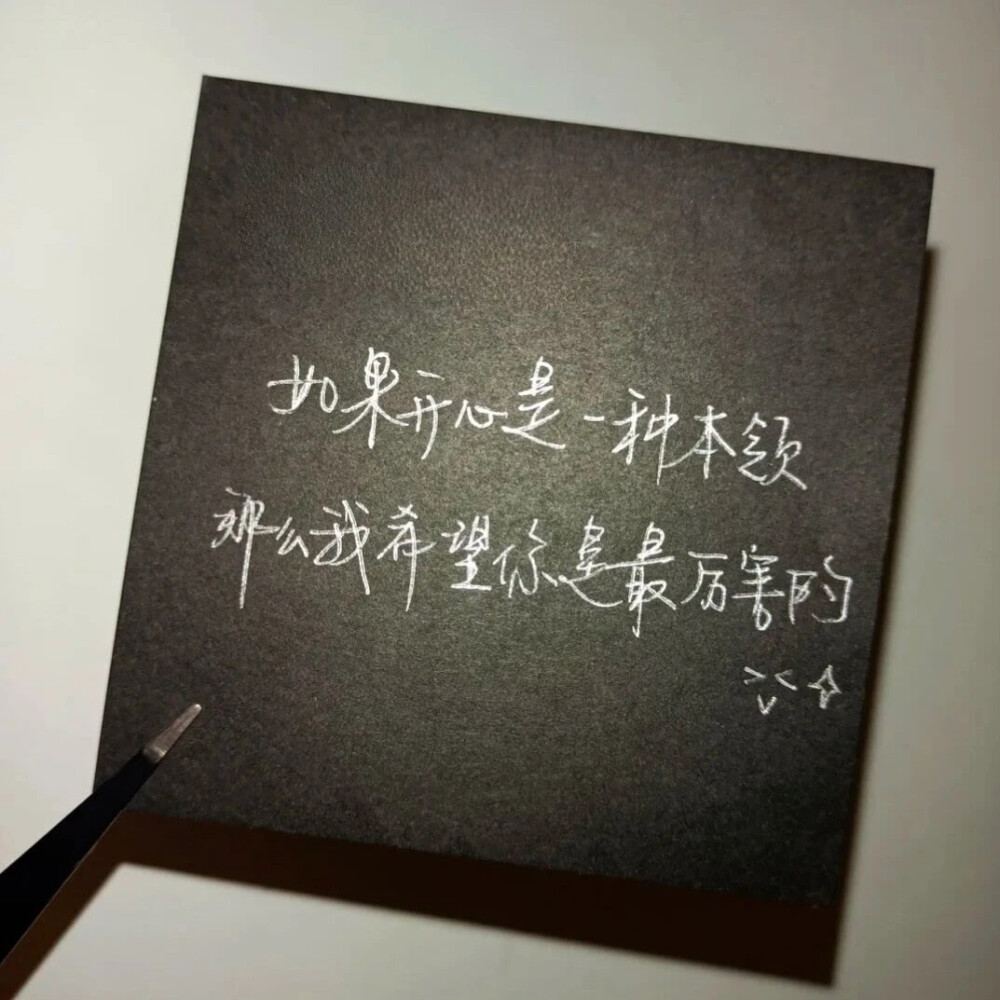 如果开心是一种本领
那么我希望你是最厉害的